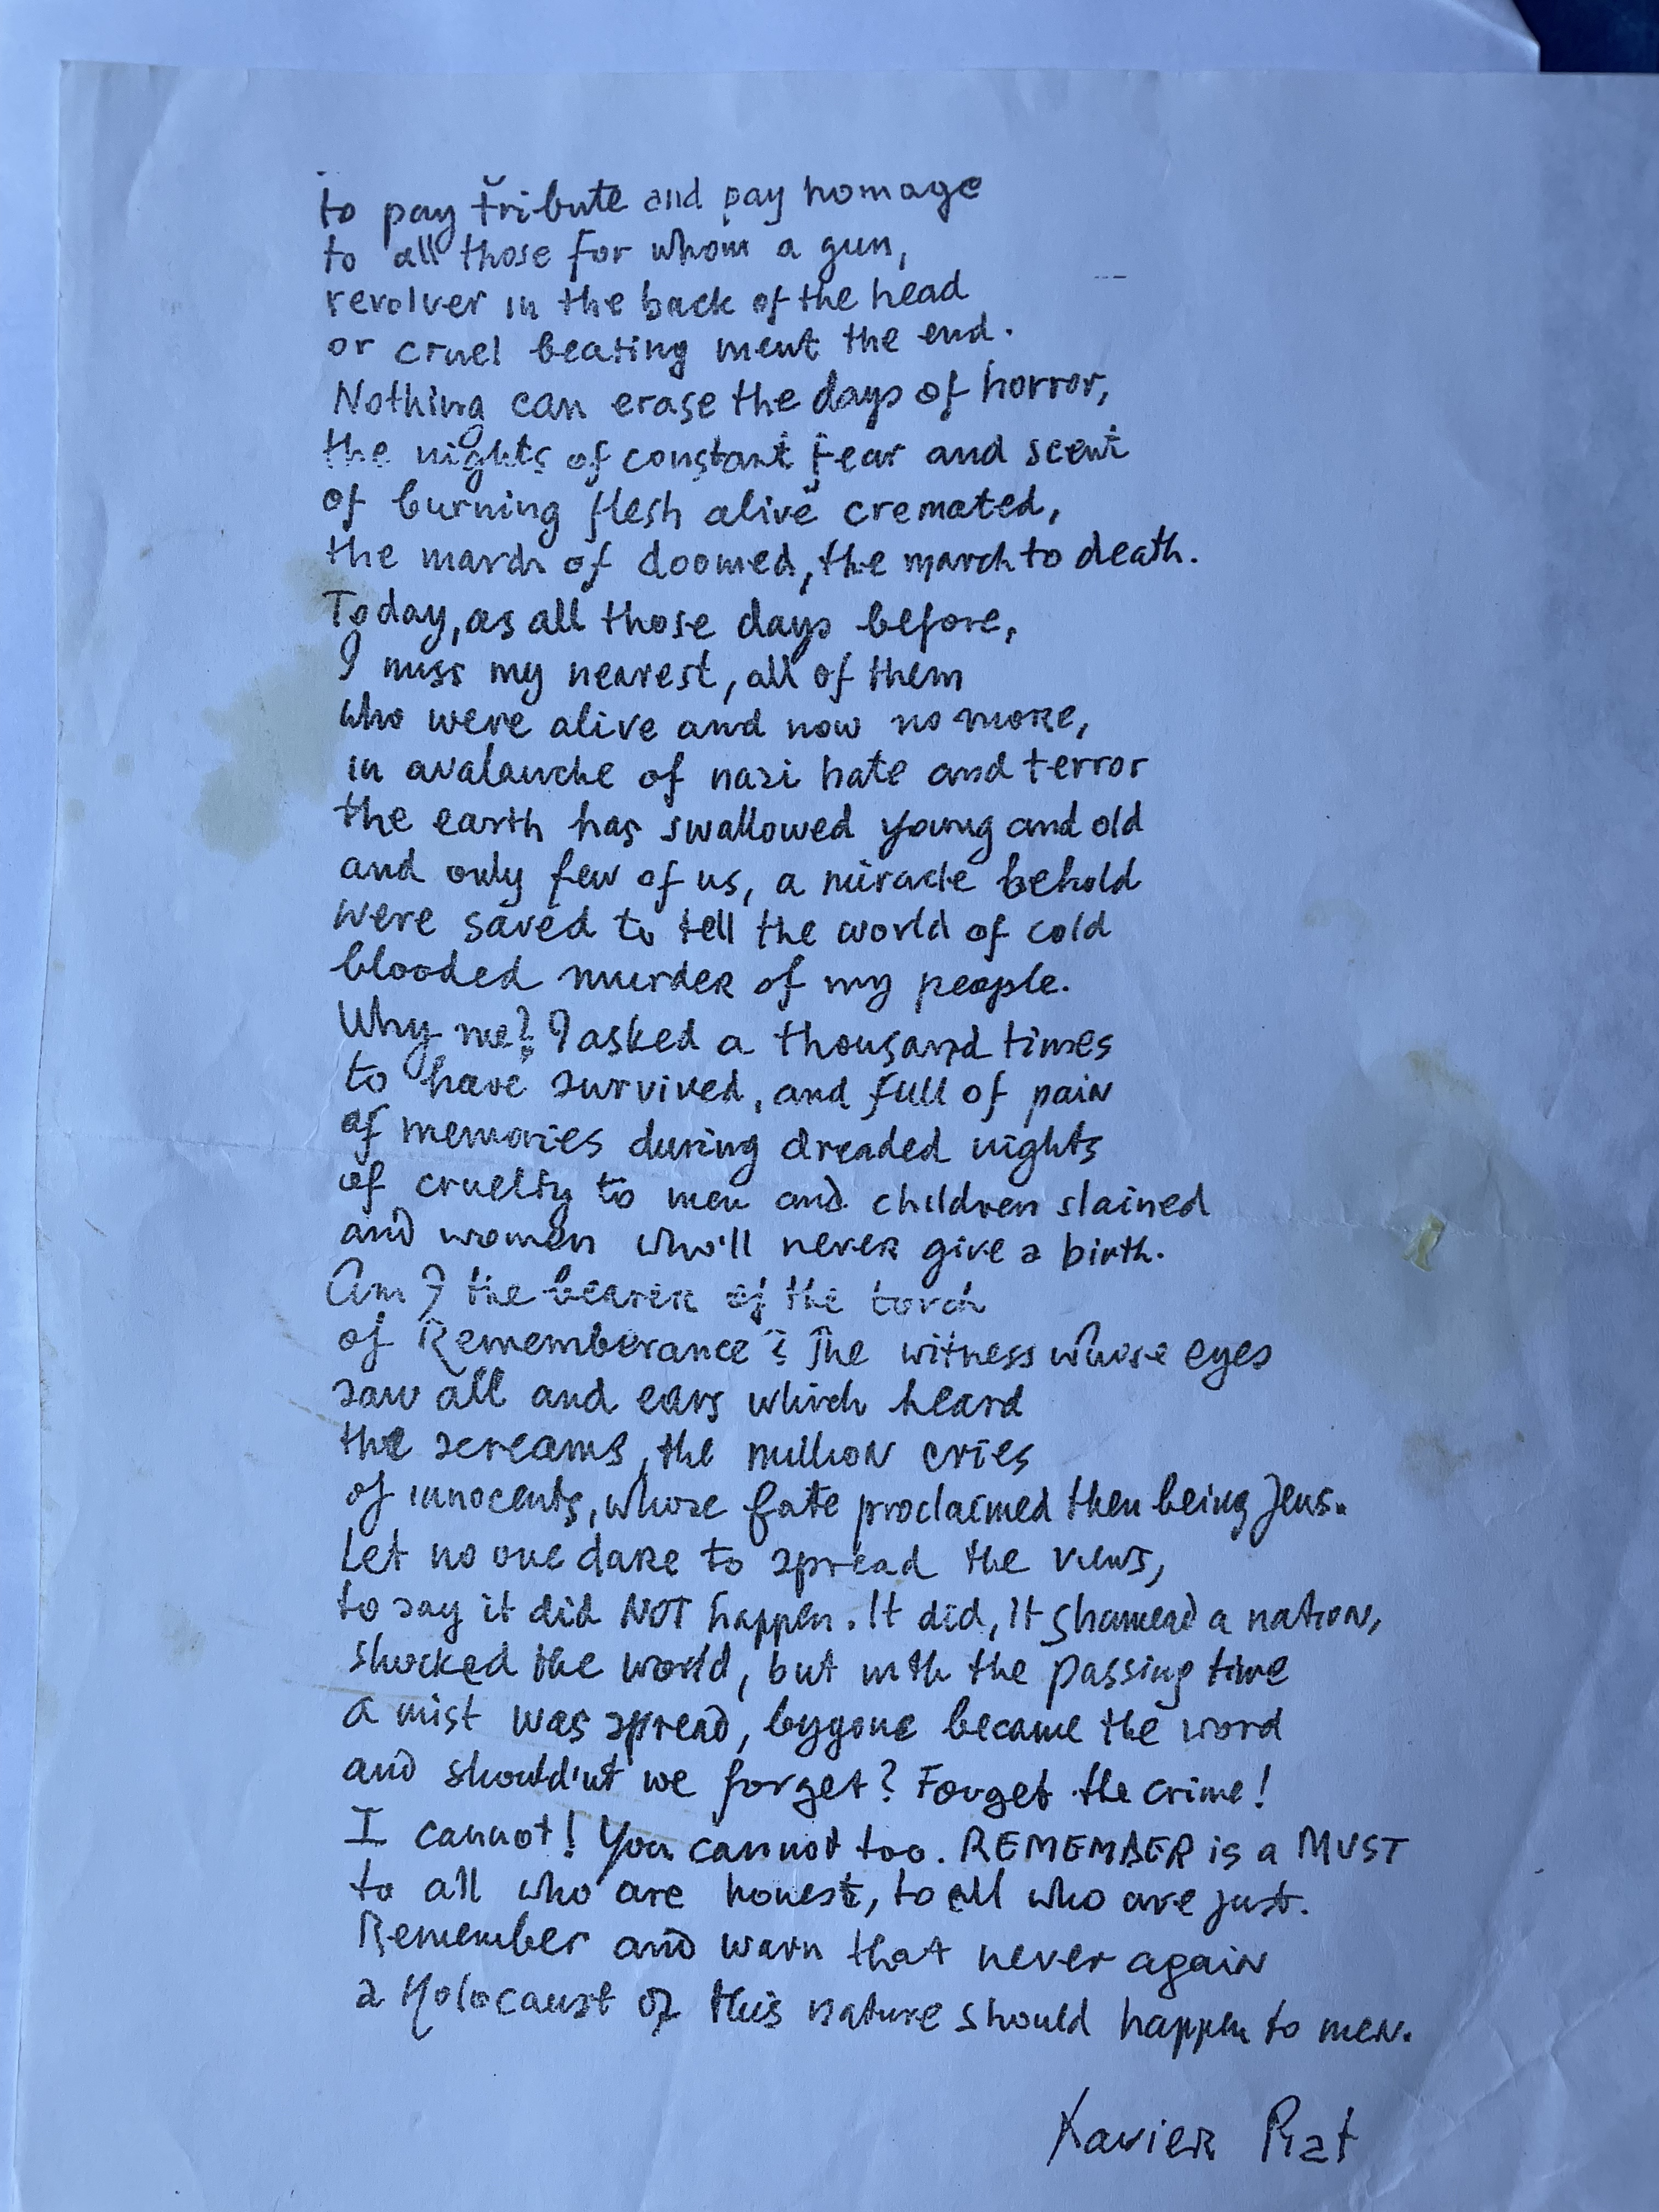 to pay tribute and pay homage
to all those for whom a gun,
revolver in the back of the head
or cruel beating ment the end.
Nothing can erase the days of horror,
the nights of constant fear and scent
of burning flesh alive cremated,
the march of doomed, the march to death.
Today, as all those days before,
I miss my nearest, all of them
who were alive and now no more,
in avalanche of nazi hate and terror
the earth has swallowed young and old
and only few of us, a miracle behold
were saved to tell the world of cold
blooded murder of my people.
Why me? I asked a thousand times
to have survived, and full of pain
of memories during dreaded nights
of cruelty to men and children slained
and women who'll never give a birth.
Am I the bearer of the torch
of Rememberance? The witness whose eyes
saw all and ears which heard
the screams, the million cries
of innocents, whose fate proclaimed then being Jews.
Let no one dare to spread the views,
to say it did NOT happen. It did, It shamed a nation,
shocked the world, but with the passing time
a mist was spread, bygone became the word
and should'nt we forget? Forget the crime!
I cannot! You cannot too. REMEMBER is a MUST
to all who are honest, to all who are just.
Remember and warn that never again
a Holocaust of this nature should happen to men.
Xavier Piat